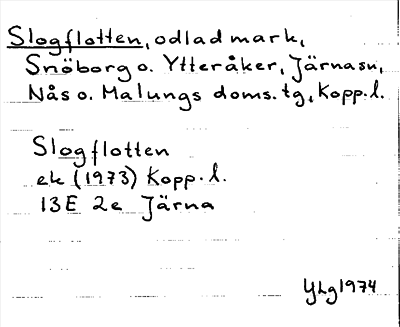 Slogflotten, odlad mark,
Snöborg o. Ytteråker, Järnasn,
Nås o. Malungs doms. tg, Kopp. l.
Slogflotten
ek (1973) Kopp. l.
13E 2e Järna
YLg 1974